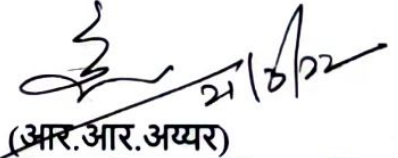 21/6/22
(आर.आर.अय्यर)